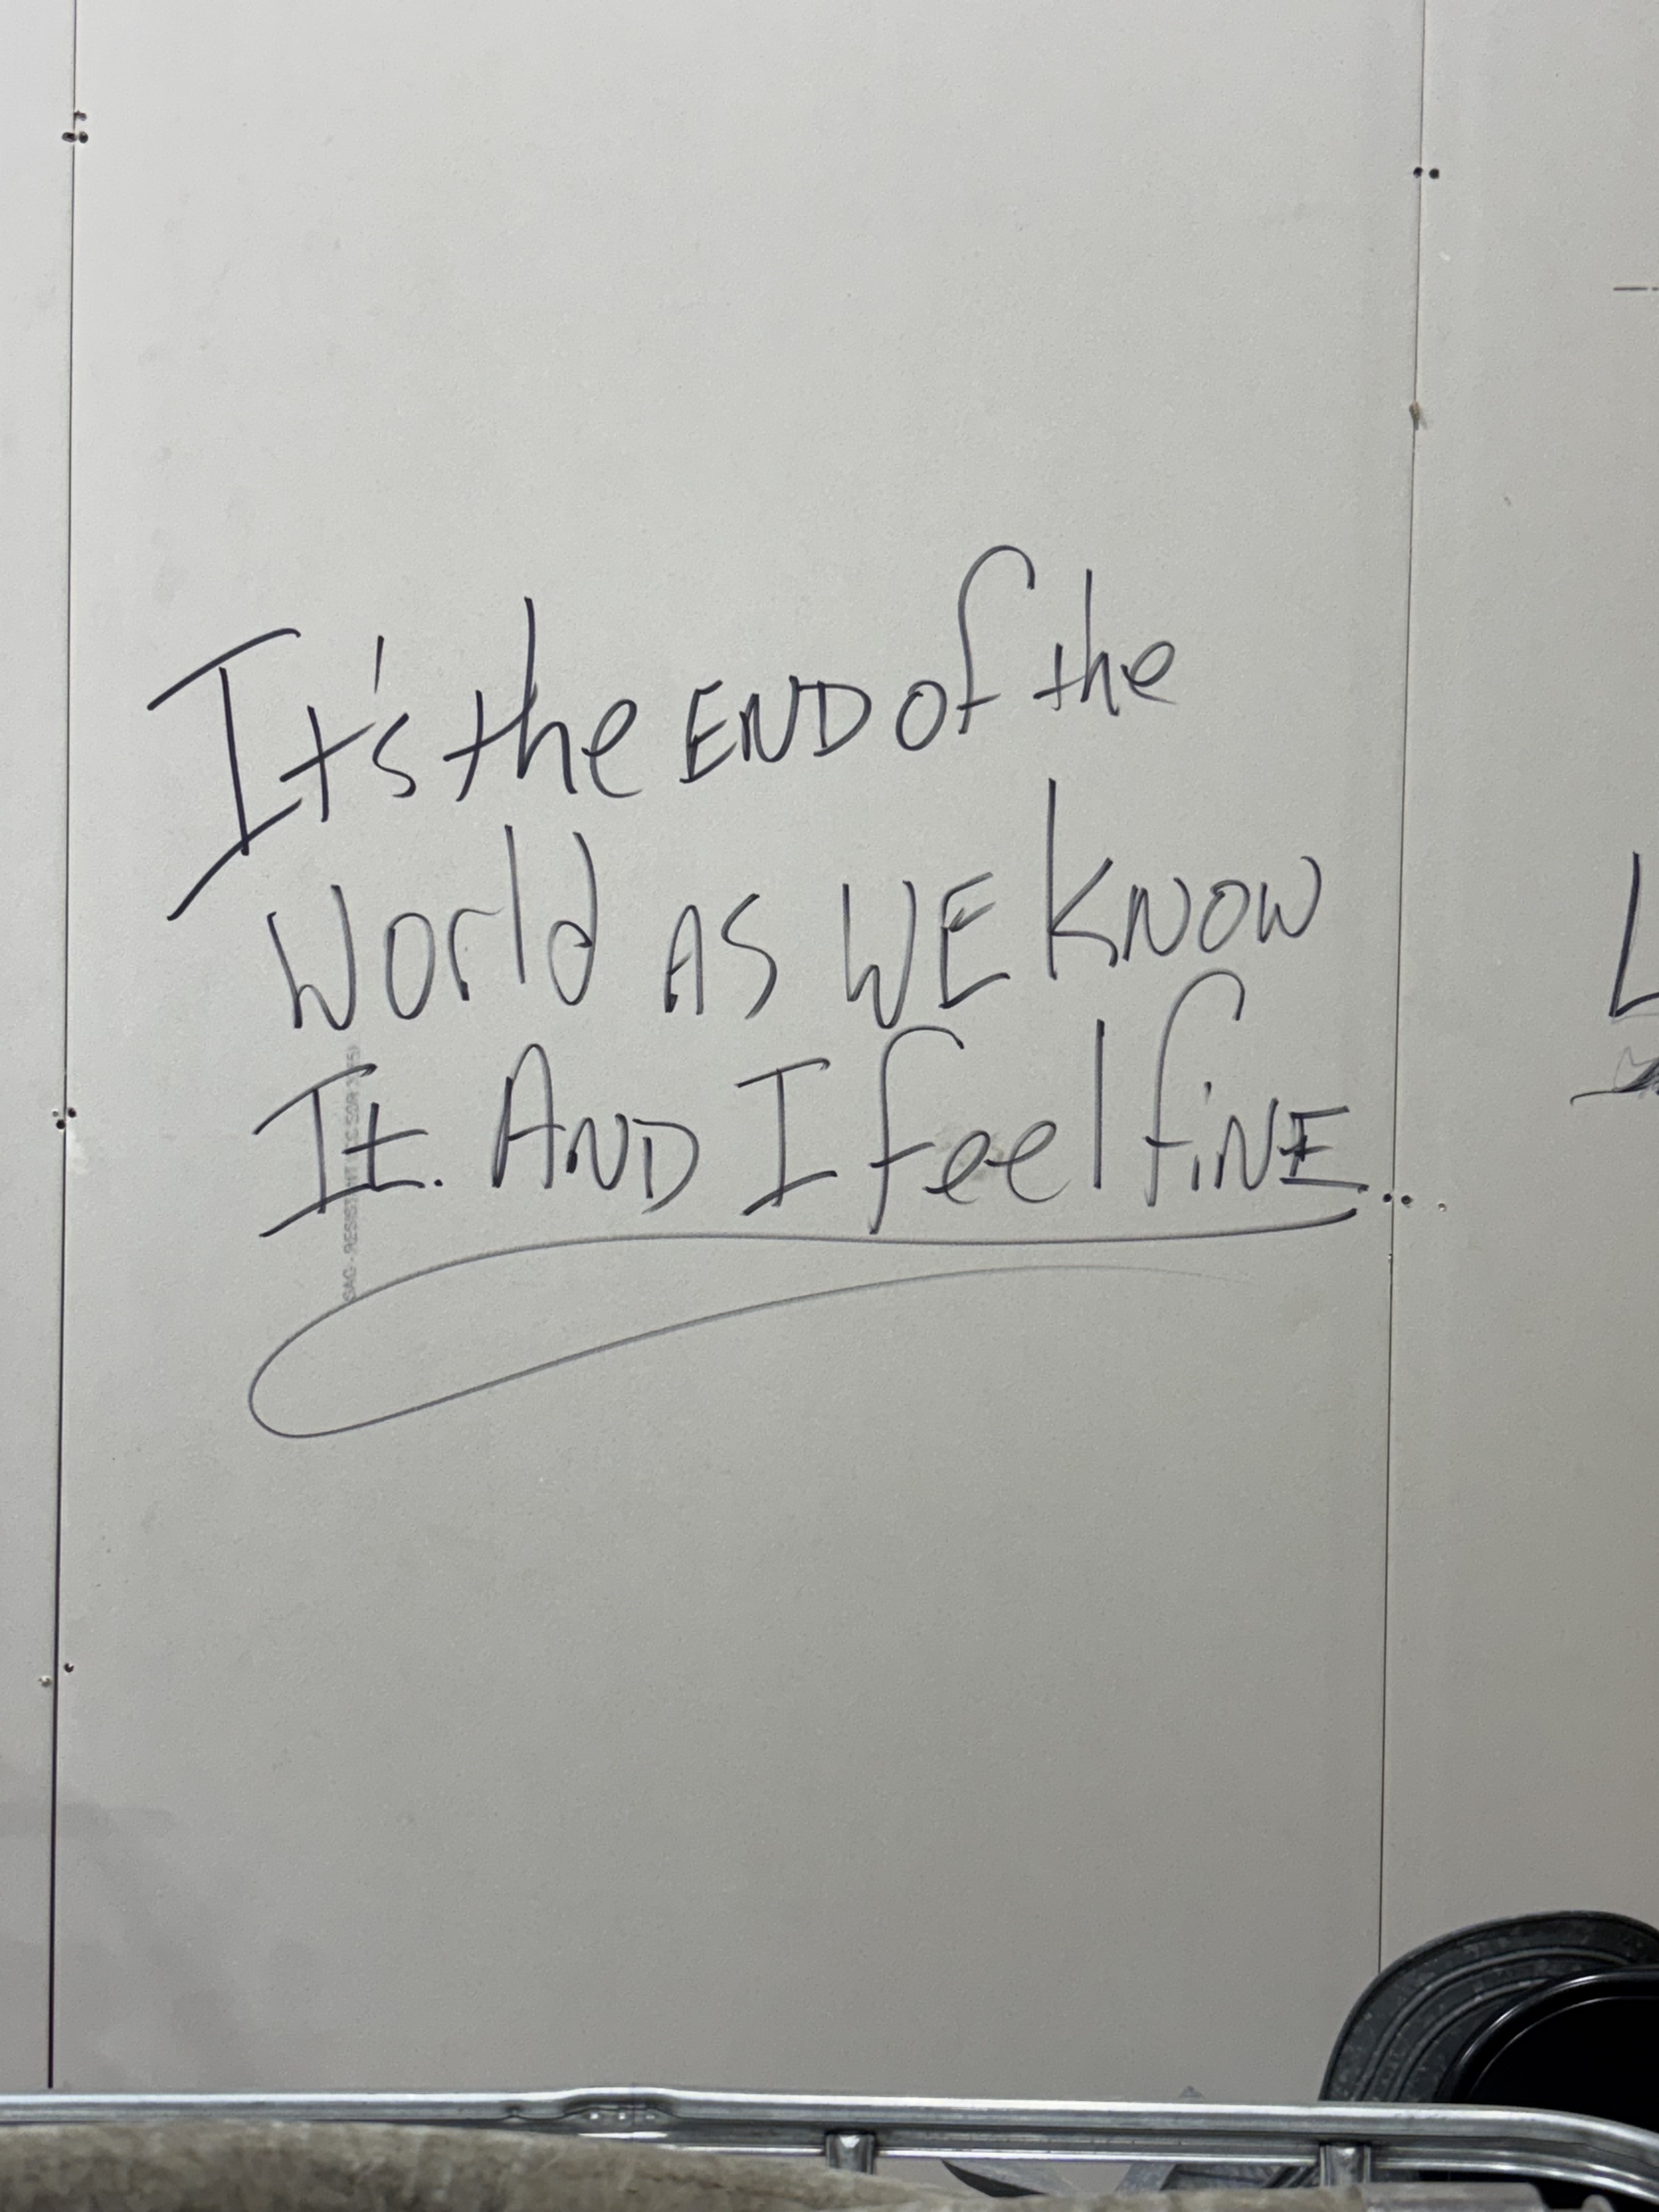 It's the END of the
World AS WE KNOW
It. AND I feel fiNE
SAG-RESISTANT
L